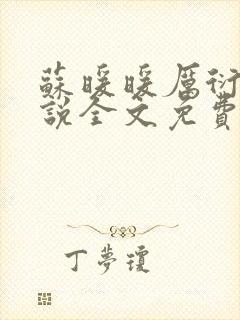 蘇暖暖厲衍
說全文免費
丁夢瓊